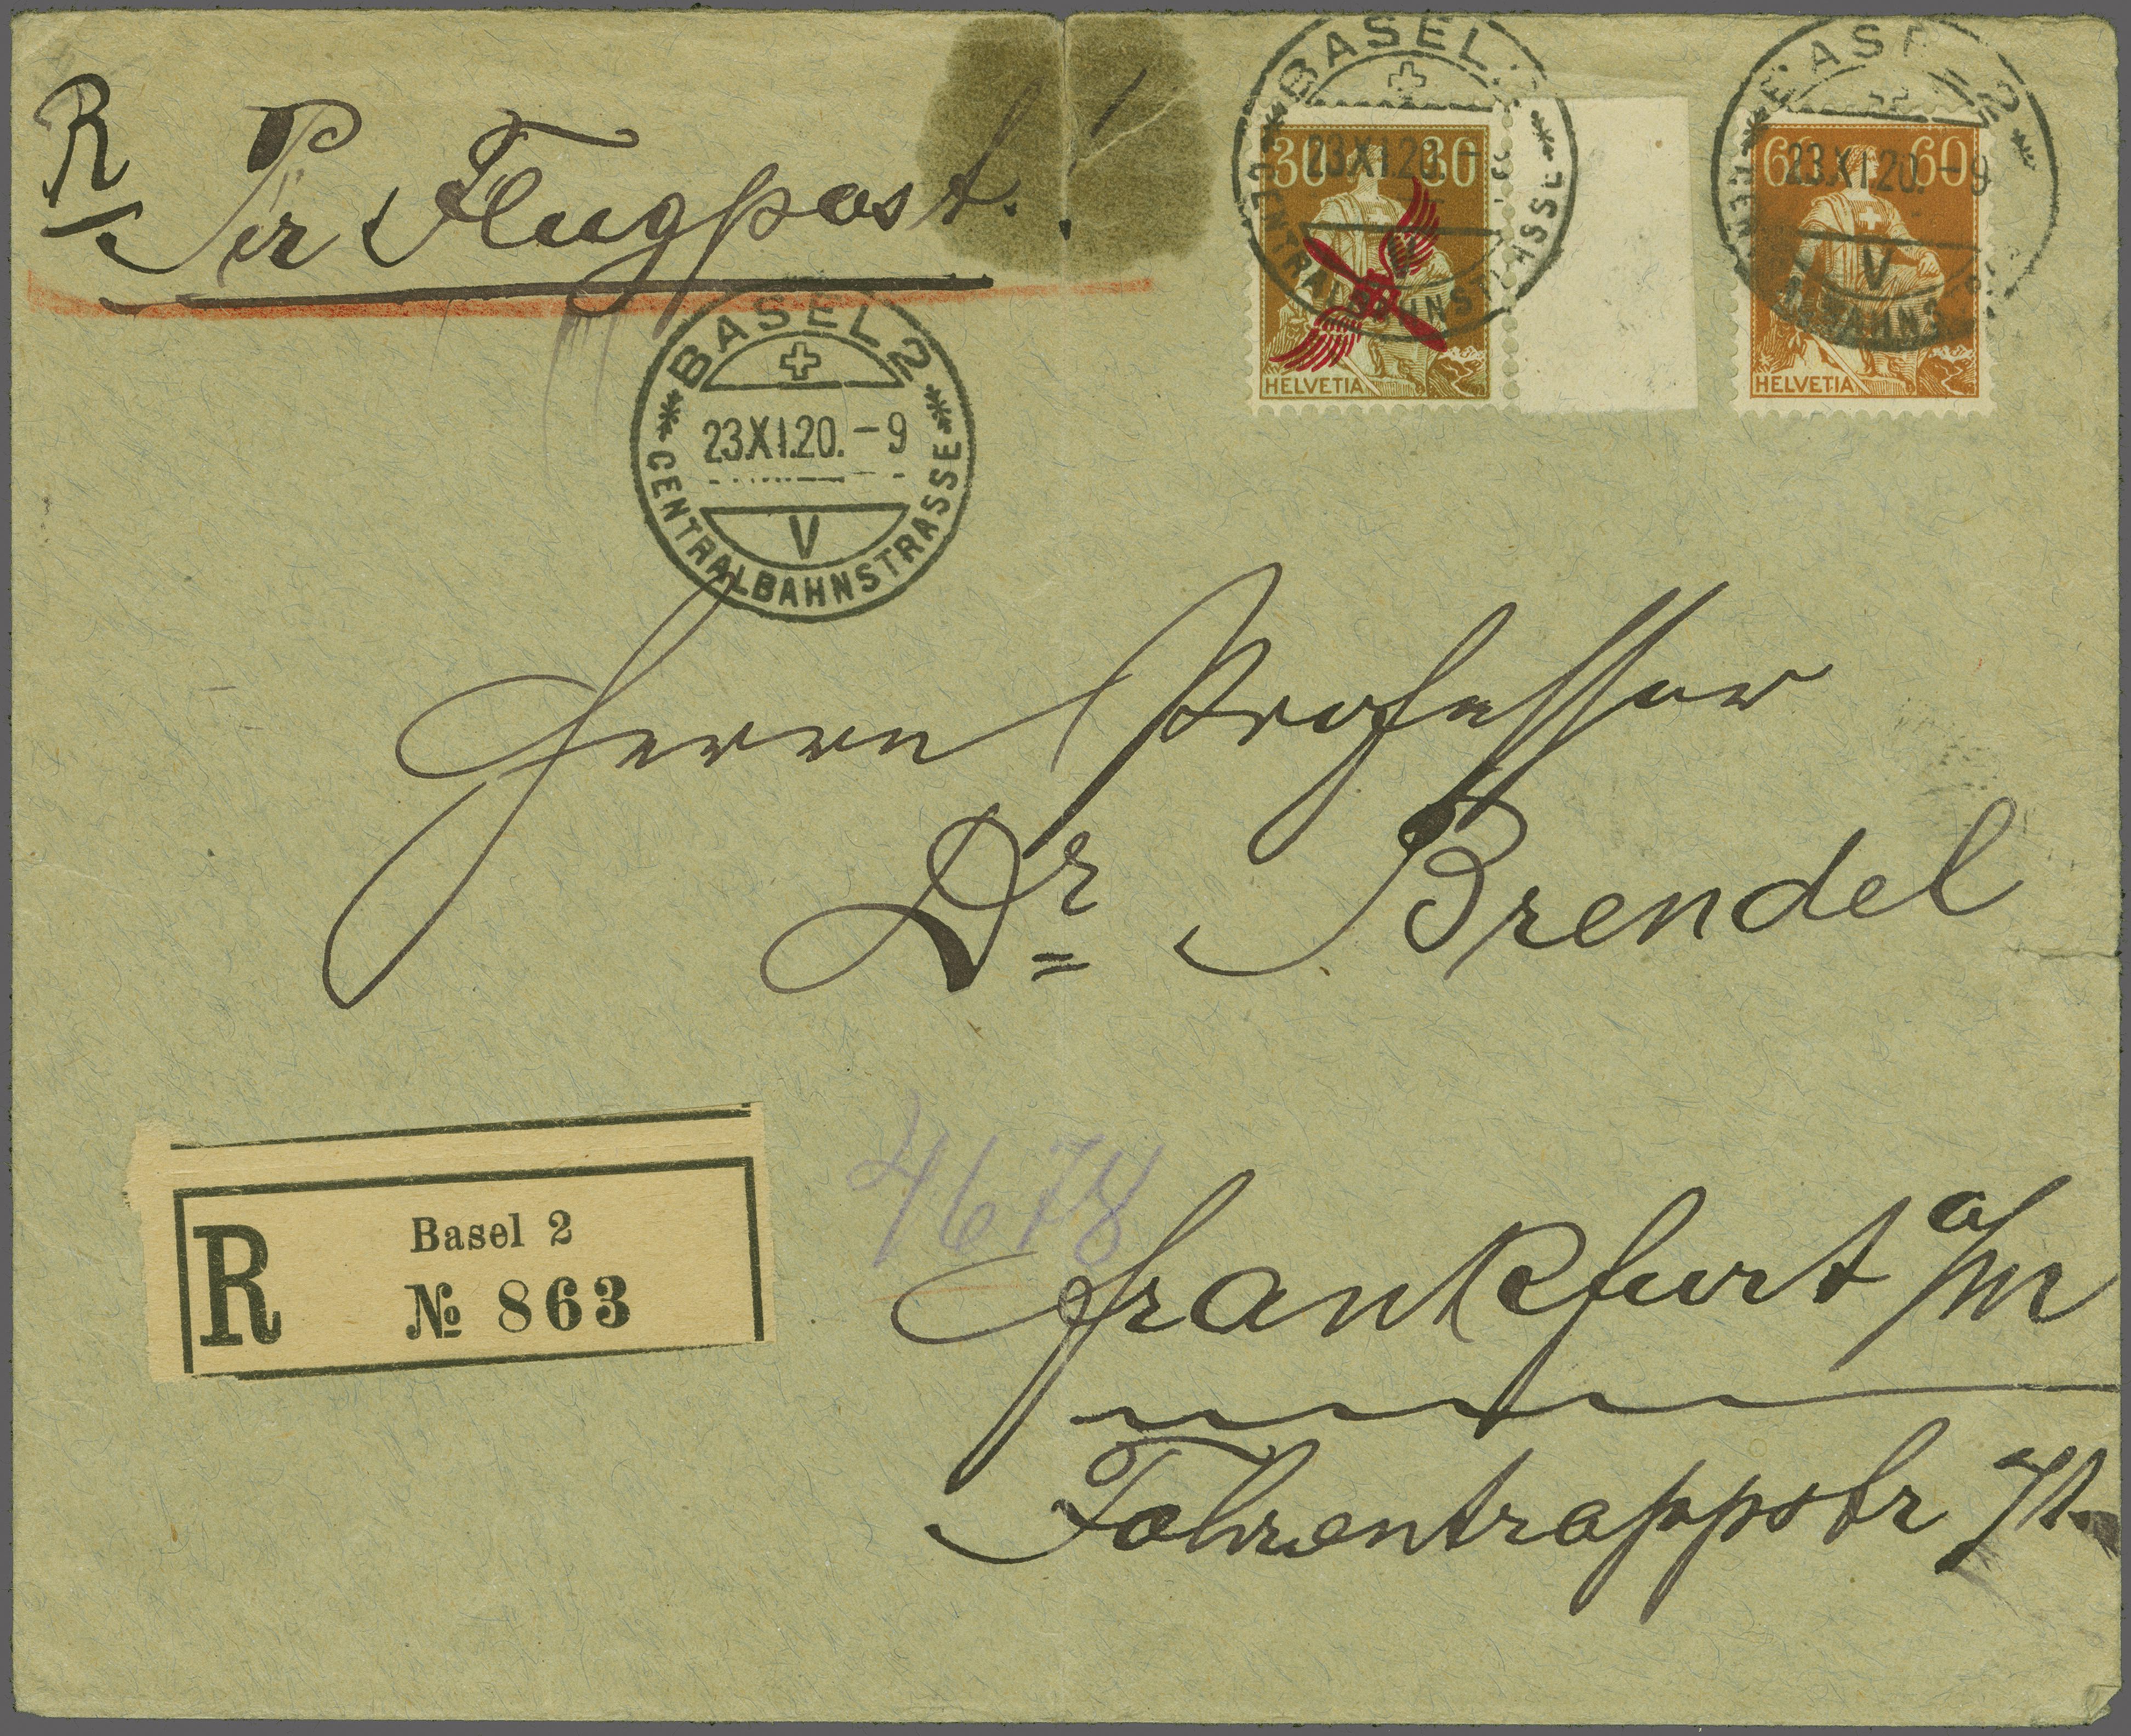 R
Per Flugpost.!
BASEL 2
23.XI.20.-9
V
CENTRALBAHNSTRASSE
BASEL
23.XI.20.-9
CENTRALBAHNSTRASSE
30 30
HELVETIA
BASEL 2
23.XI.20.-9
V
60 60
HELVETIA
Herrn Professor
Dr Brendel
R
Basel 2
№ 863
4678
Frankfurt a/M